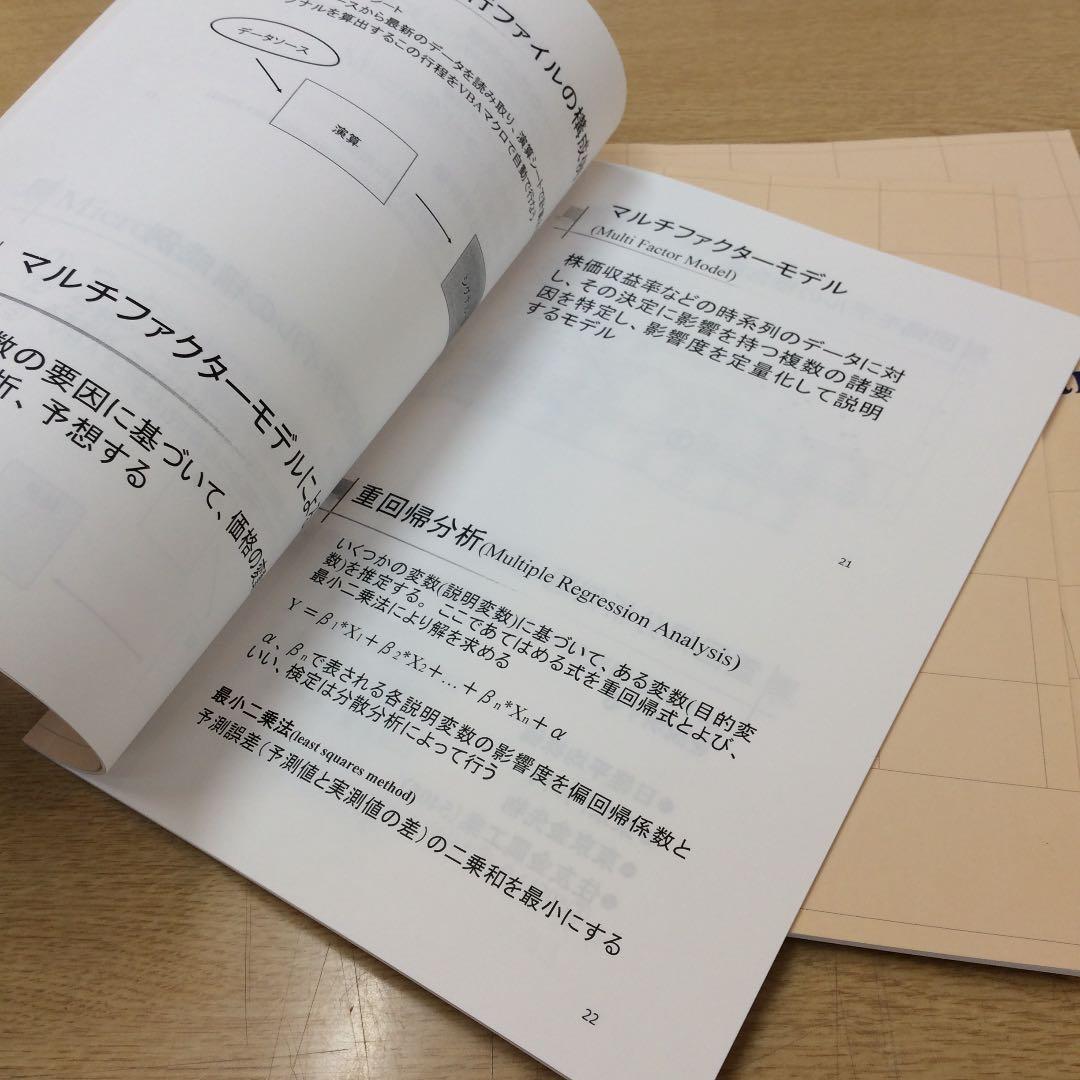 行ファイルの構成
シート
ースから最新のデータを読み取り、演算シートで
ナルを算出するこの行程をVBAマクロで自動で行う
データソース
演算
マルチファクターモデルによ
数の要因に基づいて、価格の変
析、予想する
マルチファクターモデル
(Multi Factor Model)
株価収益率などの時系列のデータに対
し、その決定に影響を持つ複数の諸要
因を特定し、影響度を定量化して説明
するモデル
21
重回帰分析(Multiple Regression Analysis)
いくつかの変数(説明変数)に基づいて、ある変数(目的変
数)を推定する。ここであてはめる式を重回帰式とよび、
最小二乗法により解を求める
Y＝β1*X1＋β2*X2＋…＋βn*Xn＋α
α、βnで表される各説明変数の影響度を偏回帰係数と
いい、検定は分散分析によって行う
最小二乗法(least squares method)
予測誤差(予測値と実測値の差)の二乗和を最小にする
22